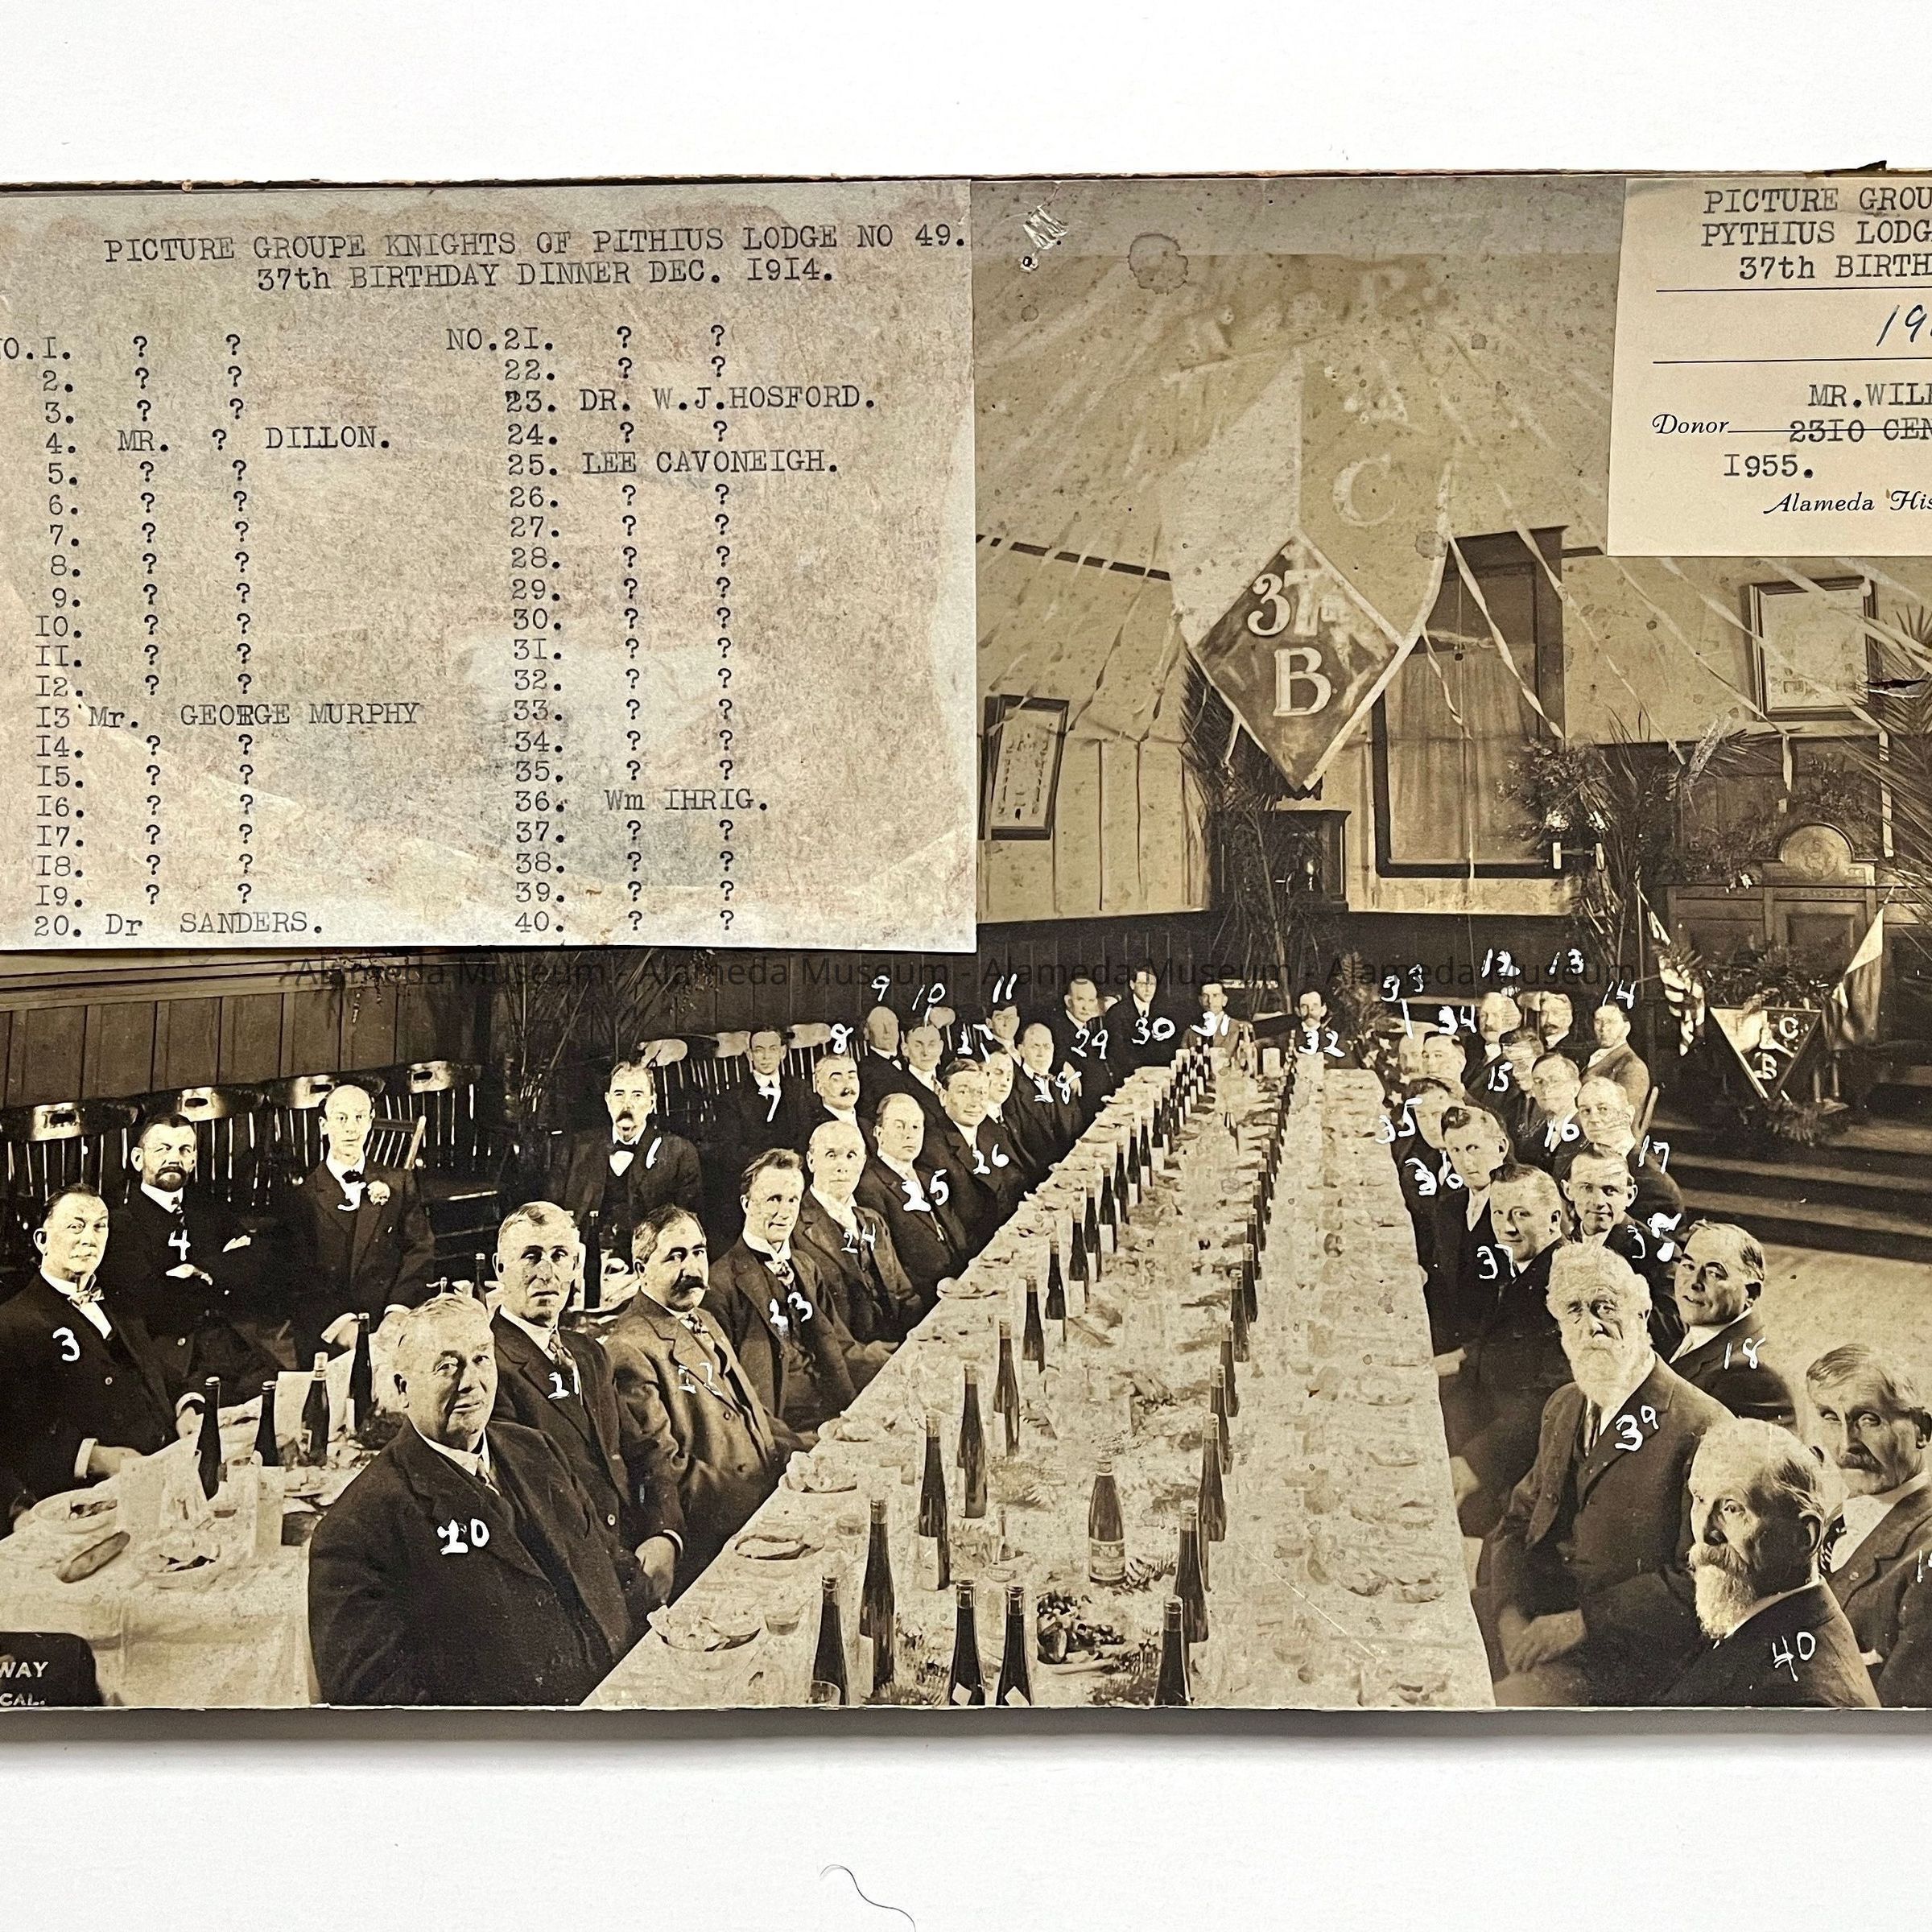 PICTURE GROUPE KNIGHTS OF PITHIUS LODGE NO 49.
37th BIRTHDAY DINNER DEC. I9I4.
NO.I. ? ?
2. ? ?
3. ? ?
4. MR. ? DILLON.
5. ? ?
6. ? ?
7. ? ?
8. ? ?
9. ? ?
IO. ? ?
II. ? ?
I2. ? ?
I3 Mr. GEORGE MURPHY
I4. ? ?
I5. ? ?
I6. ? ?
I7. ? ?
I8. ? ?
I9. ? ?
20. Dr SANDERS.
NO.2I. ? ?
22. ? ?
23. DR. W.J.HOSFORD.
24. ? ?
25. LEE CAVONEIGH.
26. ? ?
27. ? ?
28. ? ?
29. ? ?
30. ? ?
3I. ? ?
32. ? ?
33. ? ?
34. ? ?
35. ? ?
36. Wm IHRIG.
37. ? ?
38. ? ?
39. ? ?
40. ? ?
PICTURE GROU
PYTHIUS LODG
37th BIRTH
19
MR.WIL
Donor 23I0 CEN
I955.
Alameda His
C
37
B
Alameda Museum - Alameda Museum - Alameda Museum - Alameda Museum
9 10 11 33 12 13 14
8 29 30 31 32 34
7 28 15
1 26 35 16
5 25 36 17
4 24 37 38
3 23 18
21 22 39
20
40
C
B
WAY
CAL.